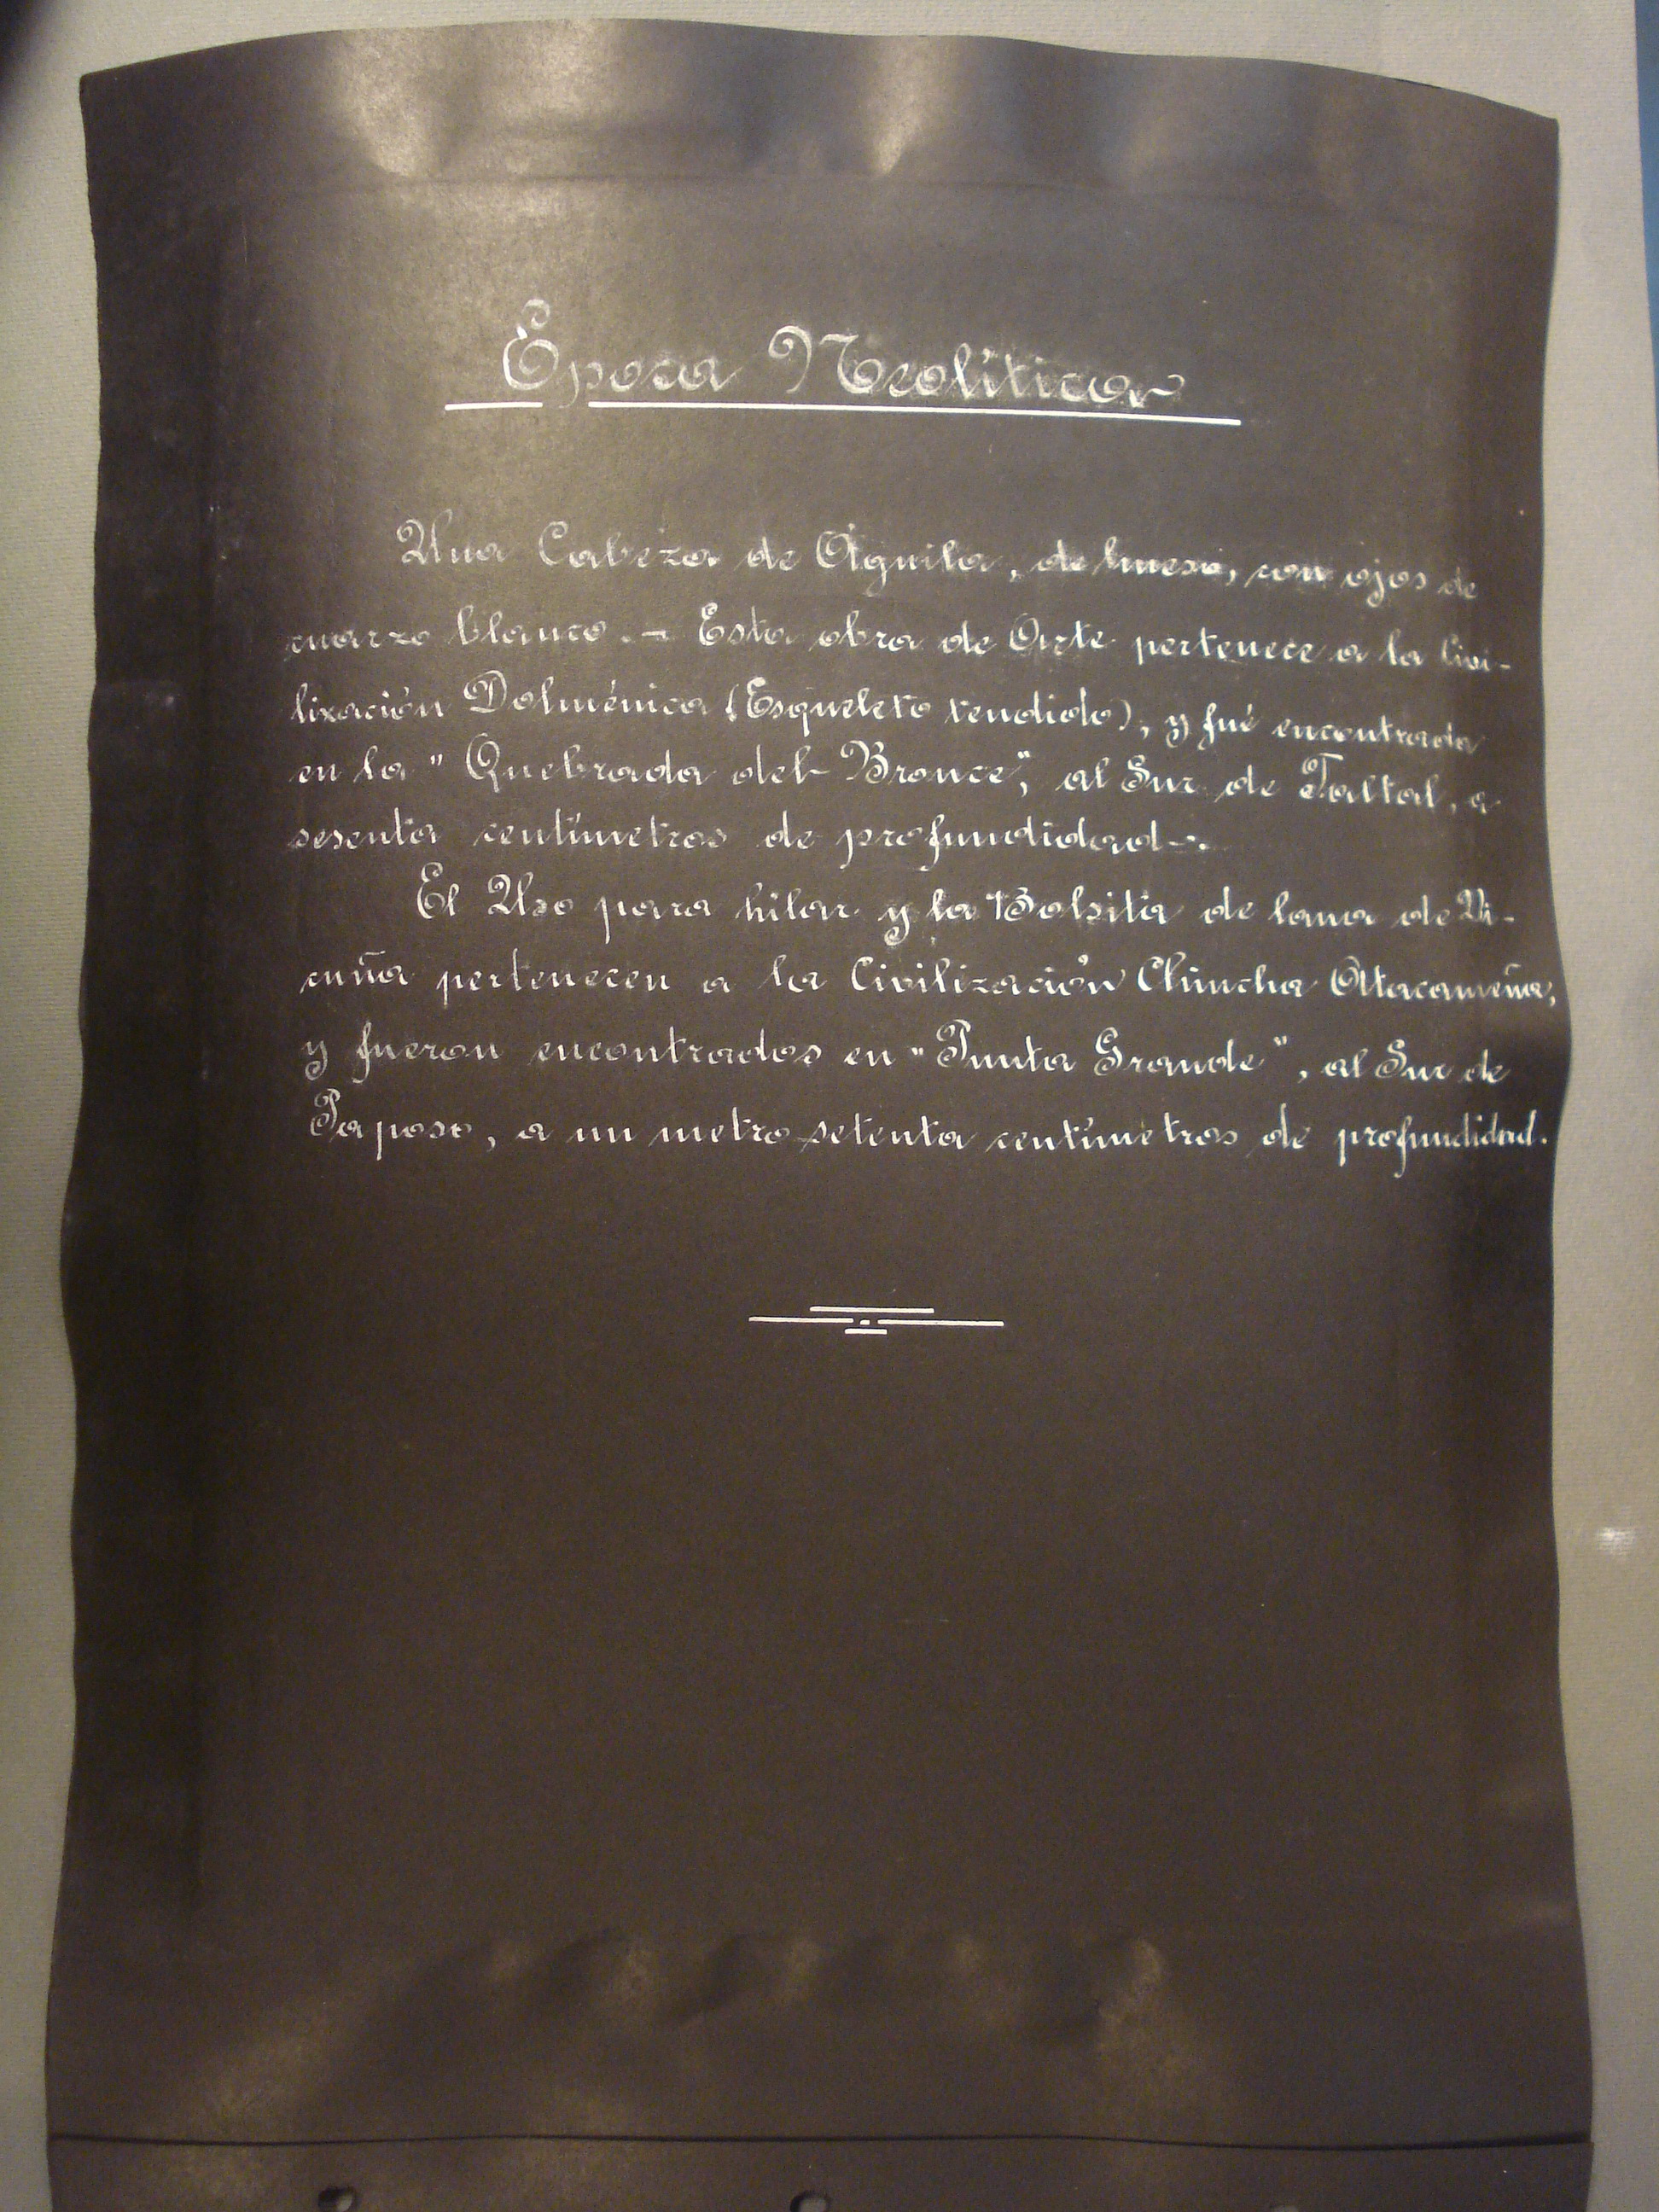 Época Neolítica
Una Cabeza de Aguila, de hueso, con ojos de
cuarzo blanco. - Esta obra de Arte pertenece a la Civi-
lización Dolménica (Esqueleto tendido), y fué encontrada
en la "Quebrada del Bronce", al Sur de Taltal, a
sesenta centímetros de profundidad-.
El Uso para hilar y la Bolsita de lana de Vi-
cuña pertenecen a la Civilización Chincha Attacameña,
y fueron encontrados en "Punta Grande", al Sur de
Paposo, a un metro setenta centímetros de profundidad.